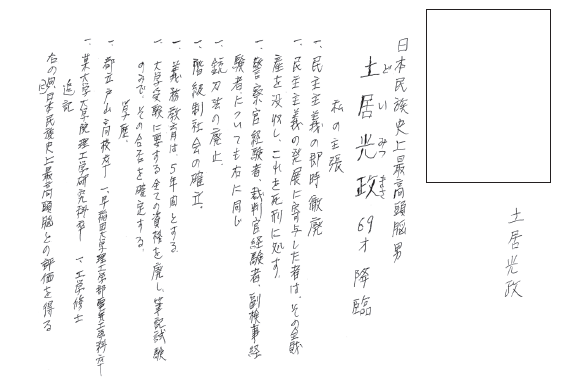 土居光政
日本民族史上最高頭脳男
どいみつまさ
土居光政 69才 降臨
私の主張
一、民主主義の即時撤廃
一、民主主義の発展に寄与した者は、その全財
産を没収し、これを死刑に処す。
一、警察官経験者、裁判官経験者、副検事経
験者についても右に同じ
一、銃刀法の廃止、
一、階級制社会の確立、
一、義務教育は、5年間とする、
一、大学受験に要する全ての資格を廃し、筆記試験
のみで、その合否を確定する、
学歴、
一、都立戸山高校卒 一、早稲田大学理工学部電気工学科卒
一、某大学大学院理工学研究科卒 工学修士
追記
右の例、日本民族史上最高頭脳との評価を得る